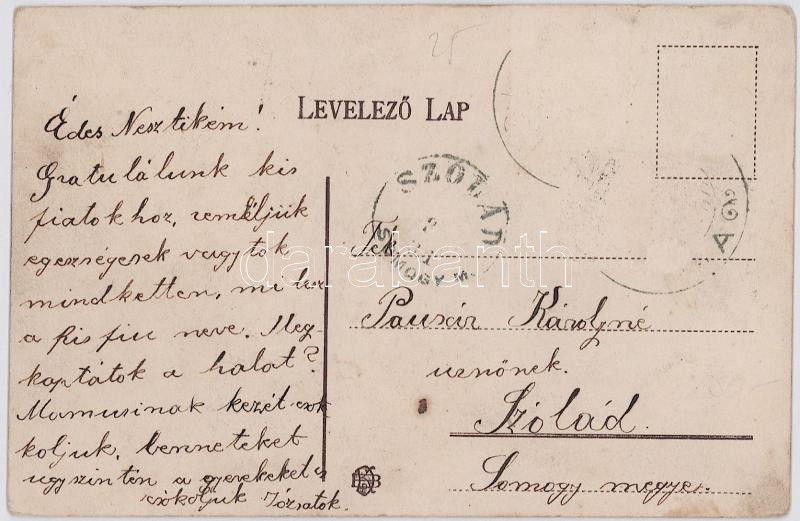 25
LEVELEZŐ LAP
Édes Nesztikém!
Gratulálunk kis
fiatokhoz, reméljük
egezségesek vagytok
mindketten, mi lesz
a kis fiu neve. Meg-
kaptátok a halat?
Mamusinak kezét csó
koljuk, benneteket
ugyszintén a gyerekeket is
csókoljuk Józsatok.
SZÓLÁD
SOMOGY M.
Tek
Pauszár Károlyné
urnőnek.
Szólád.
Somogy megye.
darabanth